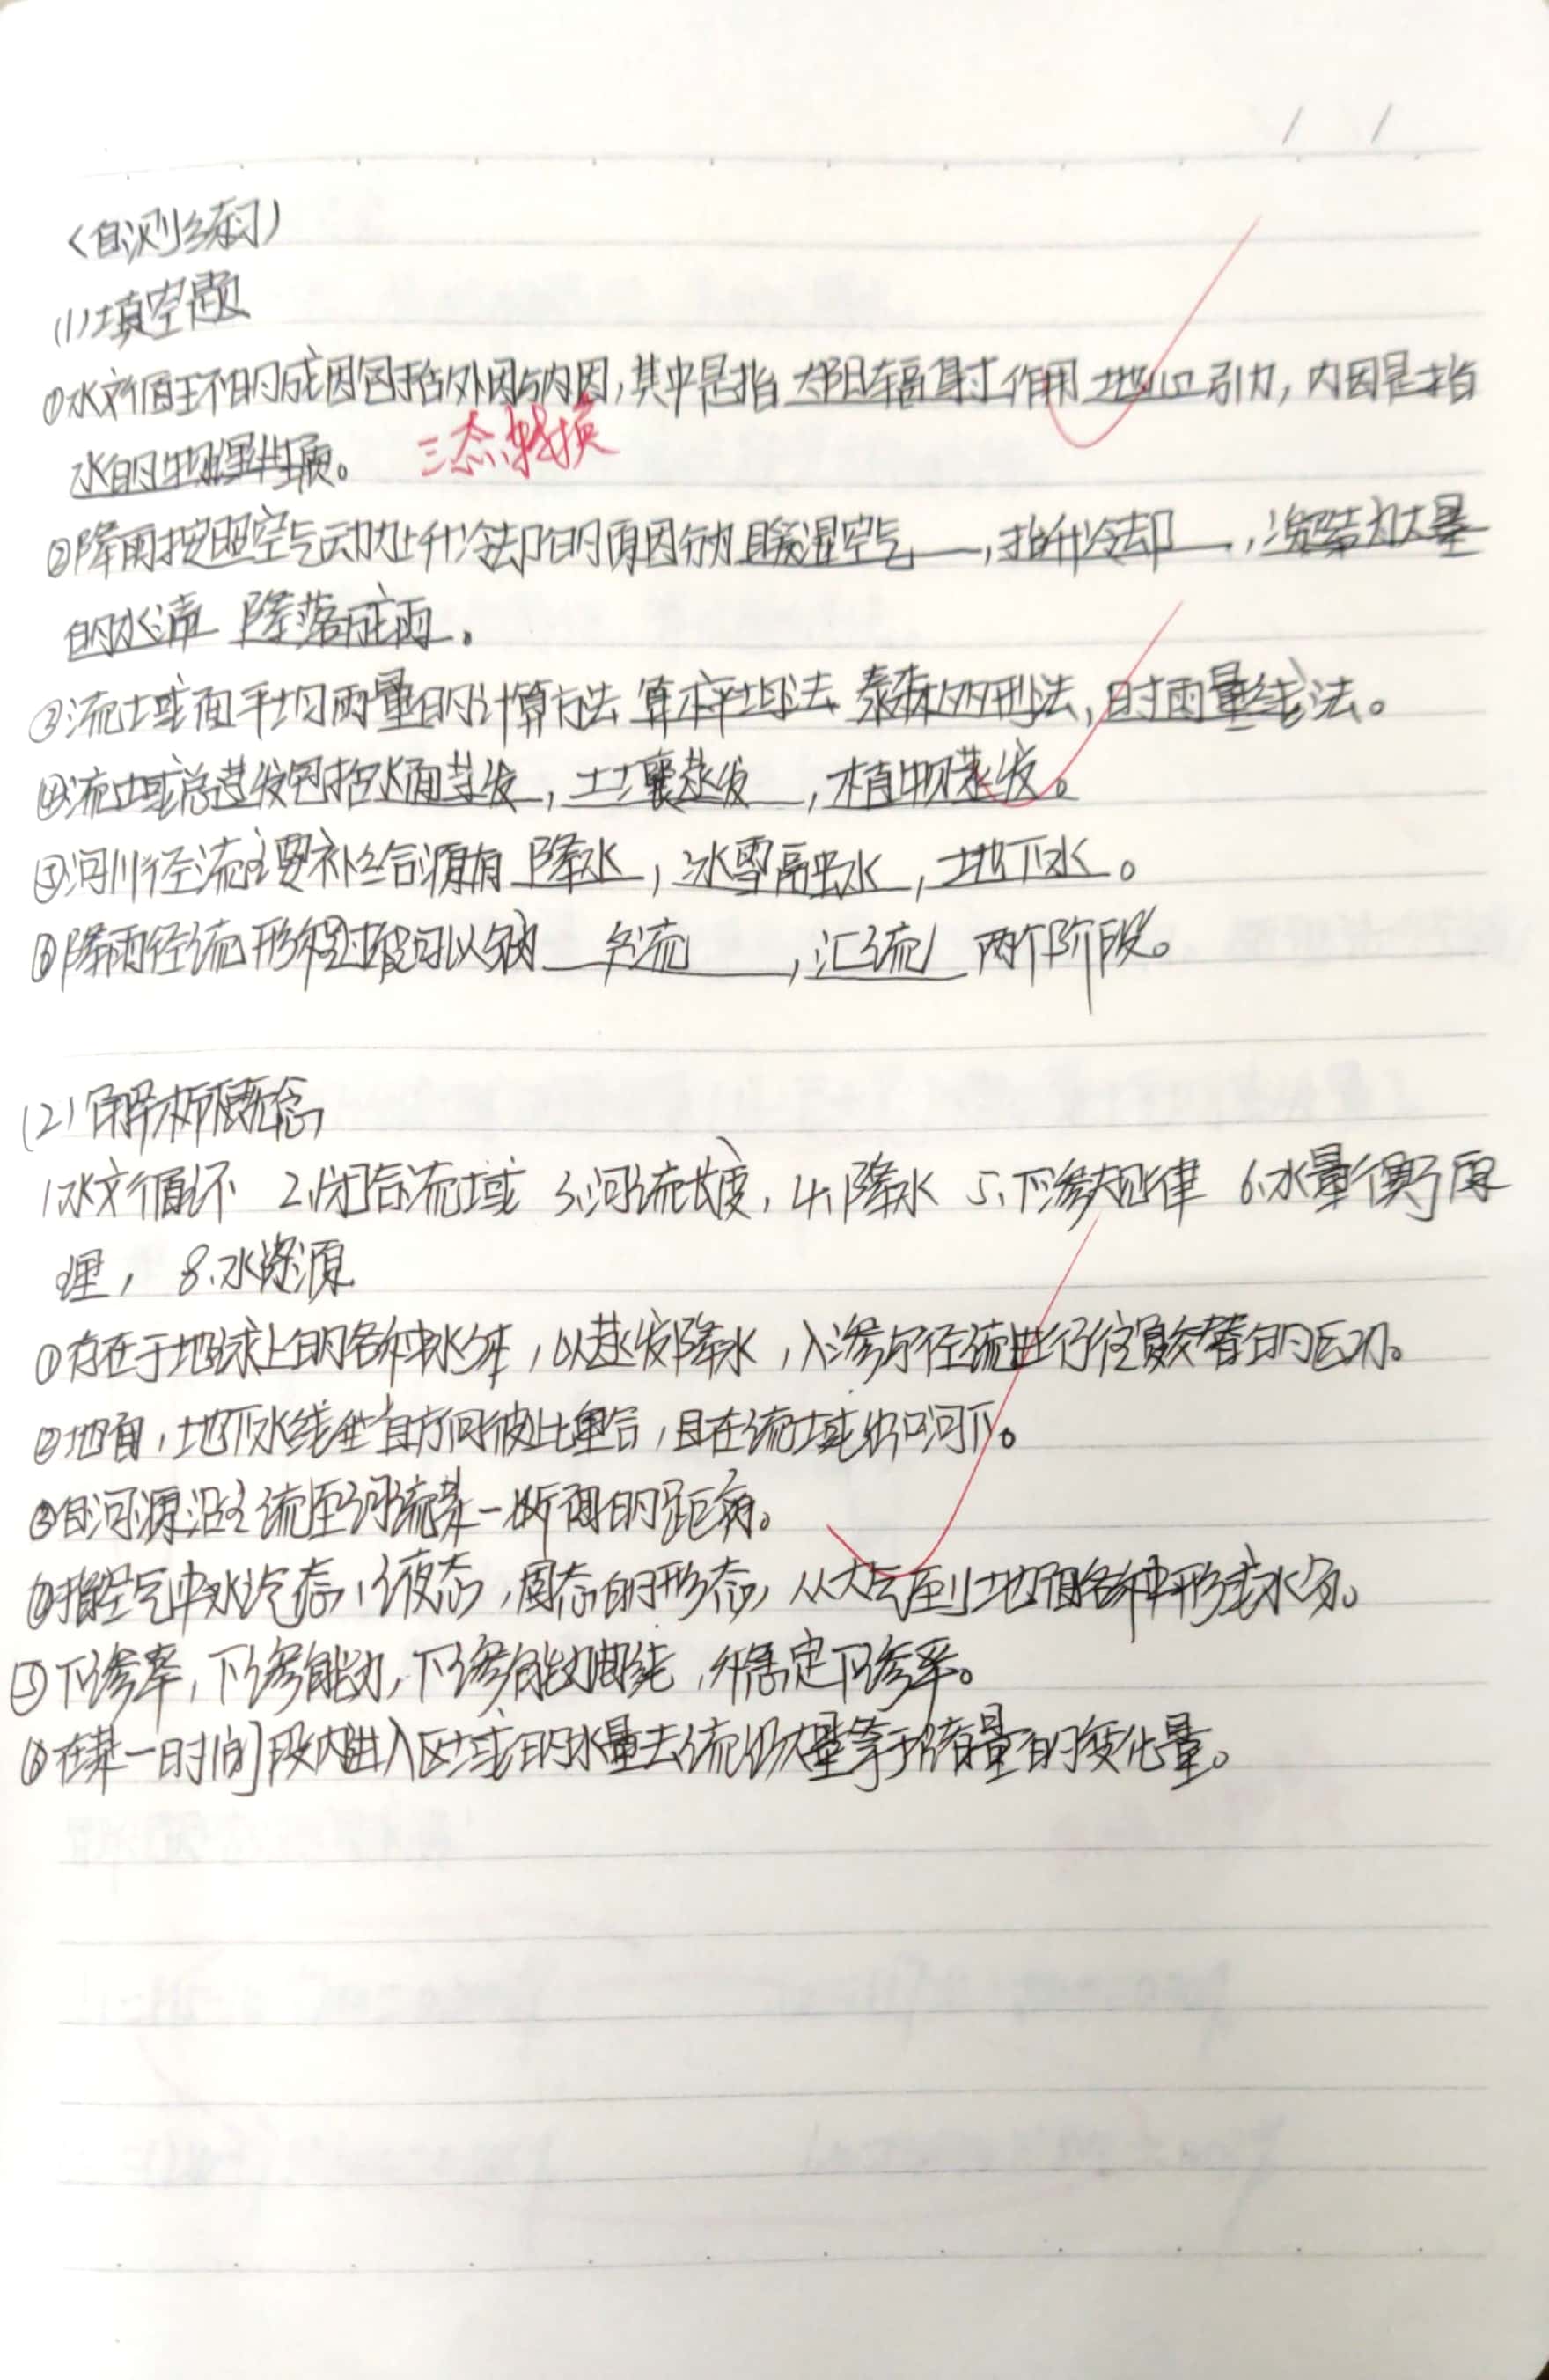 <自测练习>
(1)填空题
①水文循环的成因包括外因与内因,其中是指 太阳辐射作用 地心引力,内因是指
水的物理性质。 三态转换
②降雨按照空气动力上升冷却的原因分为 暖湿空气,抬升冷却,凝结为大量
的水滴 降落成雨.
③流域面平均雨量的计算方法 算术平均法 泰森多边形法,时雨量线法。
④流域总蒸发包括水面蒸发,土壤蒸发,植物蒸发。
⑤河川径流主要补给源有 降水,冰雪融水,地下水。
⑥降雨径流形成过程可以分为 ,汇流 两个阶段。
(2)解析概念
1.水文循环 2.闭合流域 3.河流长度,4.降水 5.下渗规律 6.水量平衡原
理, 8.水资源
①存在于地球上的各种水体,以蒸发降水,入渗与径流进行往复交替的运动。
②地面,地下水线垂直方向彼此重合,且在流域出口河下。
③自河源沿主流至河流某一断面的距离。
④指空气中水汽态,液态,固态的形态,从大气到地面各种形式水分。
⑤下渗率,下渗能力,下渗能力曲线,稳定下渗率。
⑥在某一时间段内进入区域的水量去流出水量等于储量的变化量。